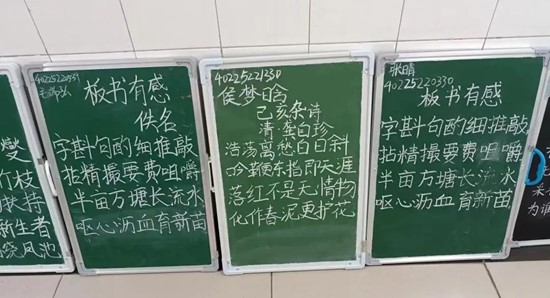 燮
枝
扶持
新生者
凤池
板书有感
佚名
字斟句酌细推敲
拈精撮要费咀嚼
半亩方塘长流水
呕心沥血育新苗
40225221330
侯梦晗
己亥杂诗
清 龚自珍
浩荡离愁白日斜
吟鞭东指即天涯
落红不是无情物
化作春泥更护花
张晴
40225220330
板书有感
字斟句酌细推敲
拈精撮要费咀嚼
半亩方塘长流水
呕心沥血育新苗
采
为